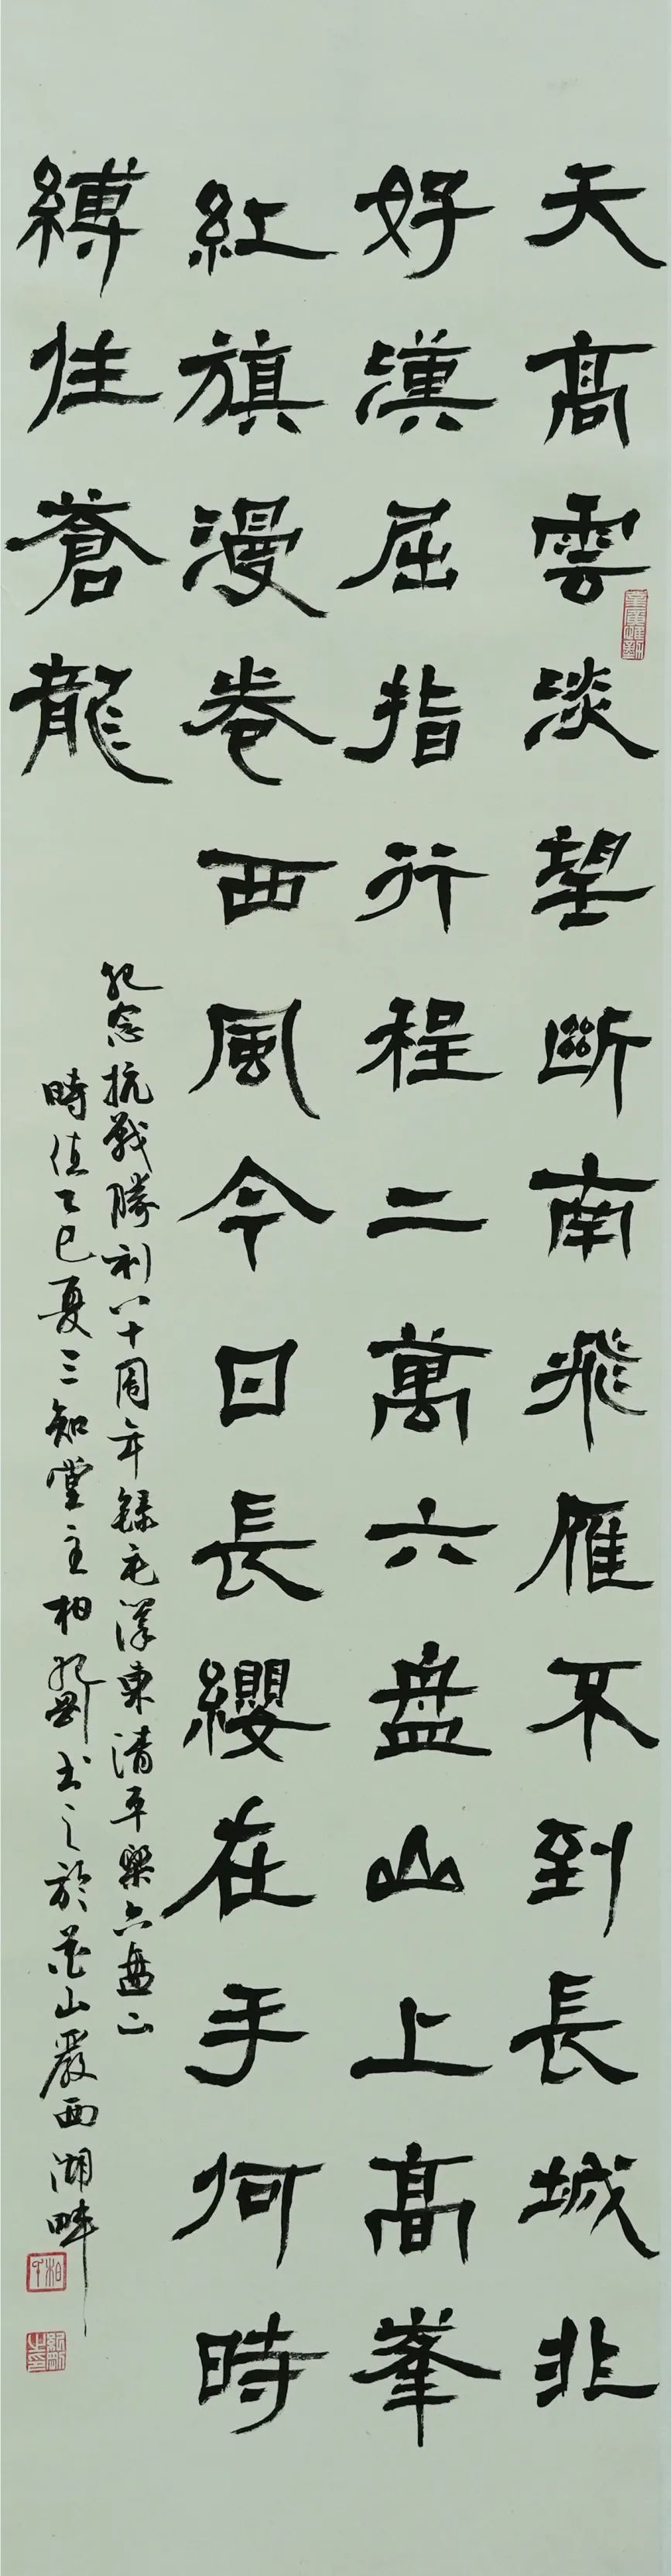 天高雲淡望斷南飛雁不到長城非
好漢屈指行程二萬六盘山上高峯
紅旗漫卷西風今日長纓在手何時
縛住蒼龍
紀念抗戰勝利八十周年錄毛澤東清平樂六盘山
時值乙巳夏三知堂主柏紀剛书之於花山嚴西湖畔